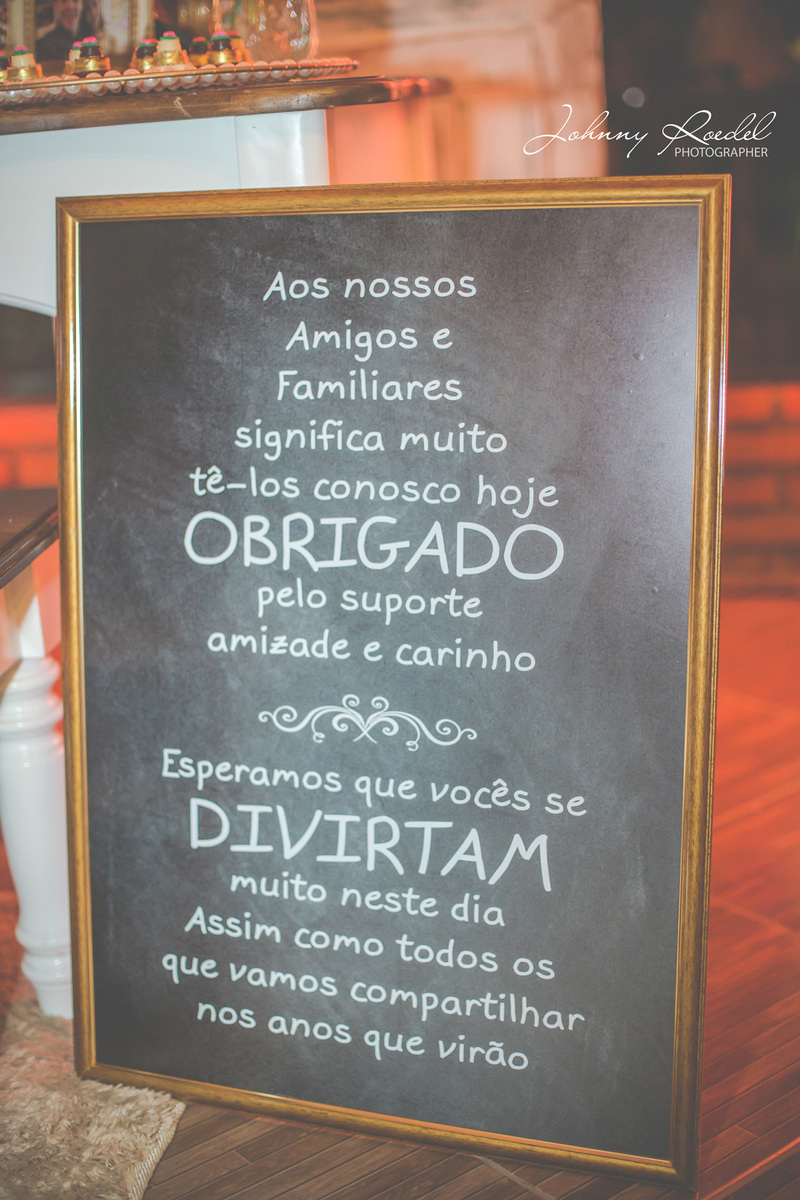 Johnny Roedel
PHOTOGRAPHER
Aos nossos
Amigos e
Familiares
significa muito
tê-los conosco hoje
OBRIGADO
pelo suporte
amizade e carinho
Esperamos que vocês se
DIVIRTAM
muito neste dia
Assim como todos os
que vamos compartilhar
nos anos que virão